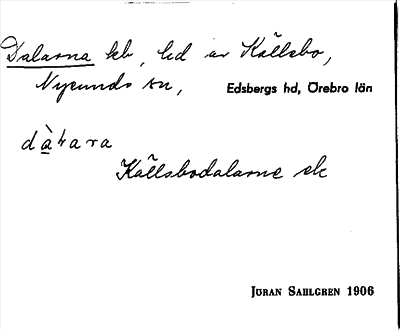 Dalarna kb, hd av Källsbo,
Nysunds sn, Edsbergs hd, Örebro län
Källsbodalarne
JÖRAN SAHLGREN 1906